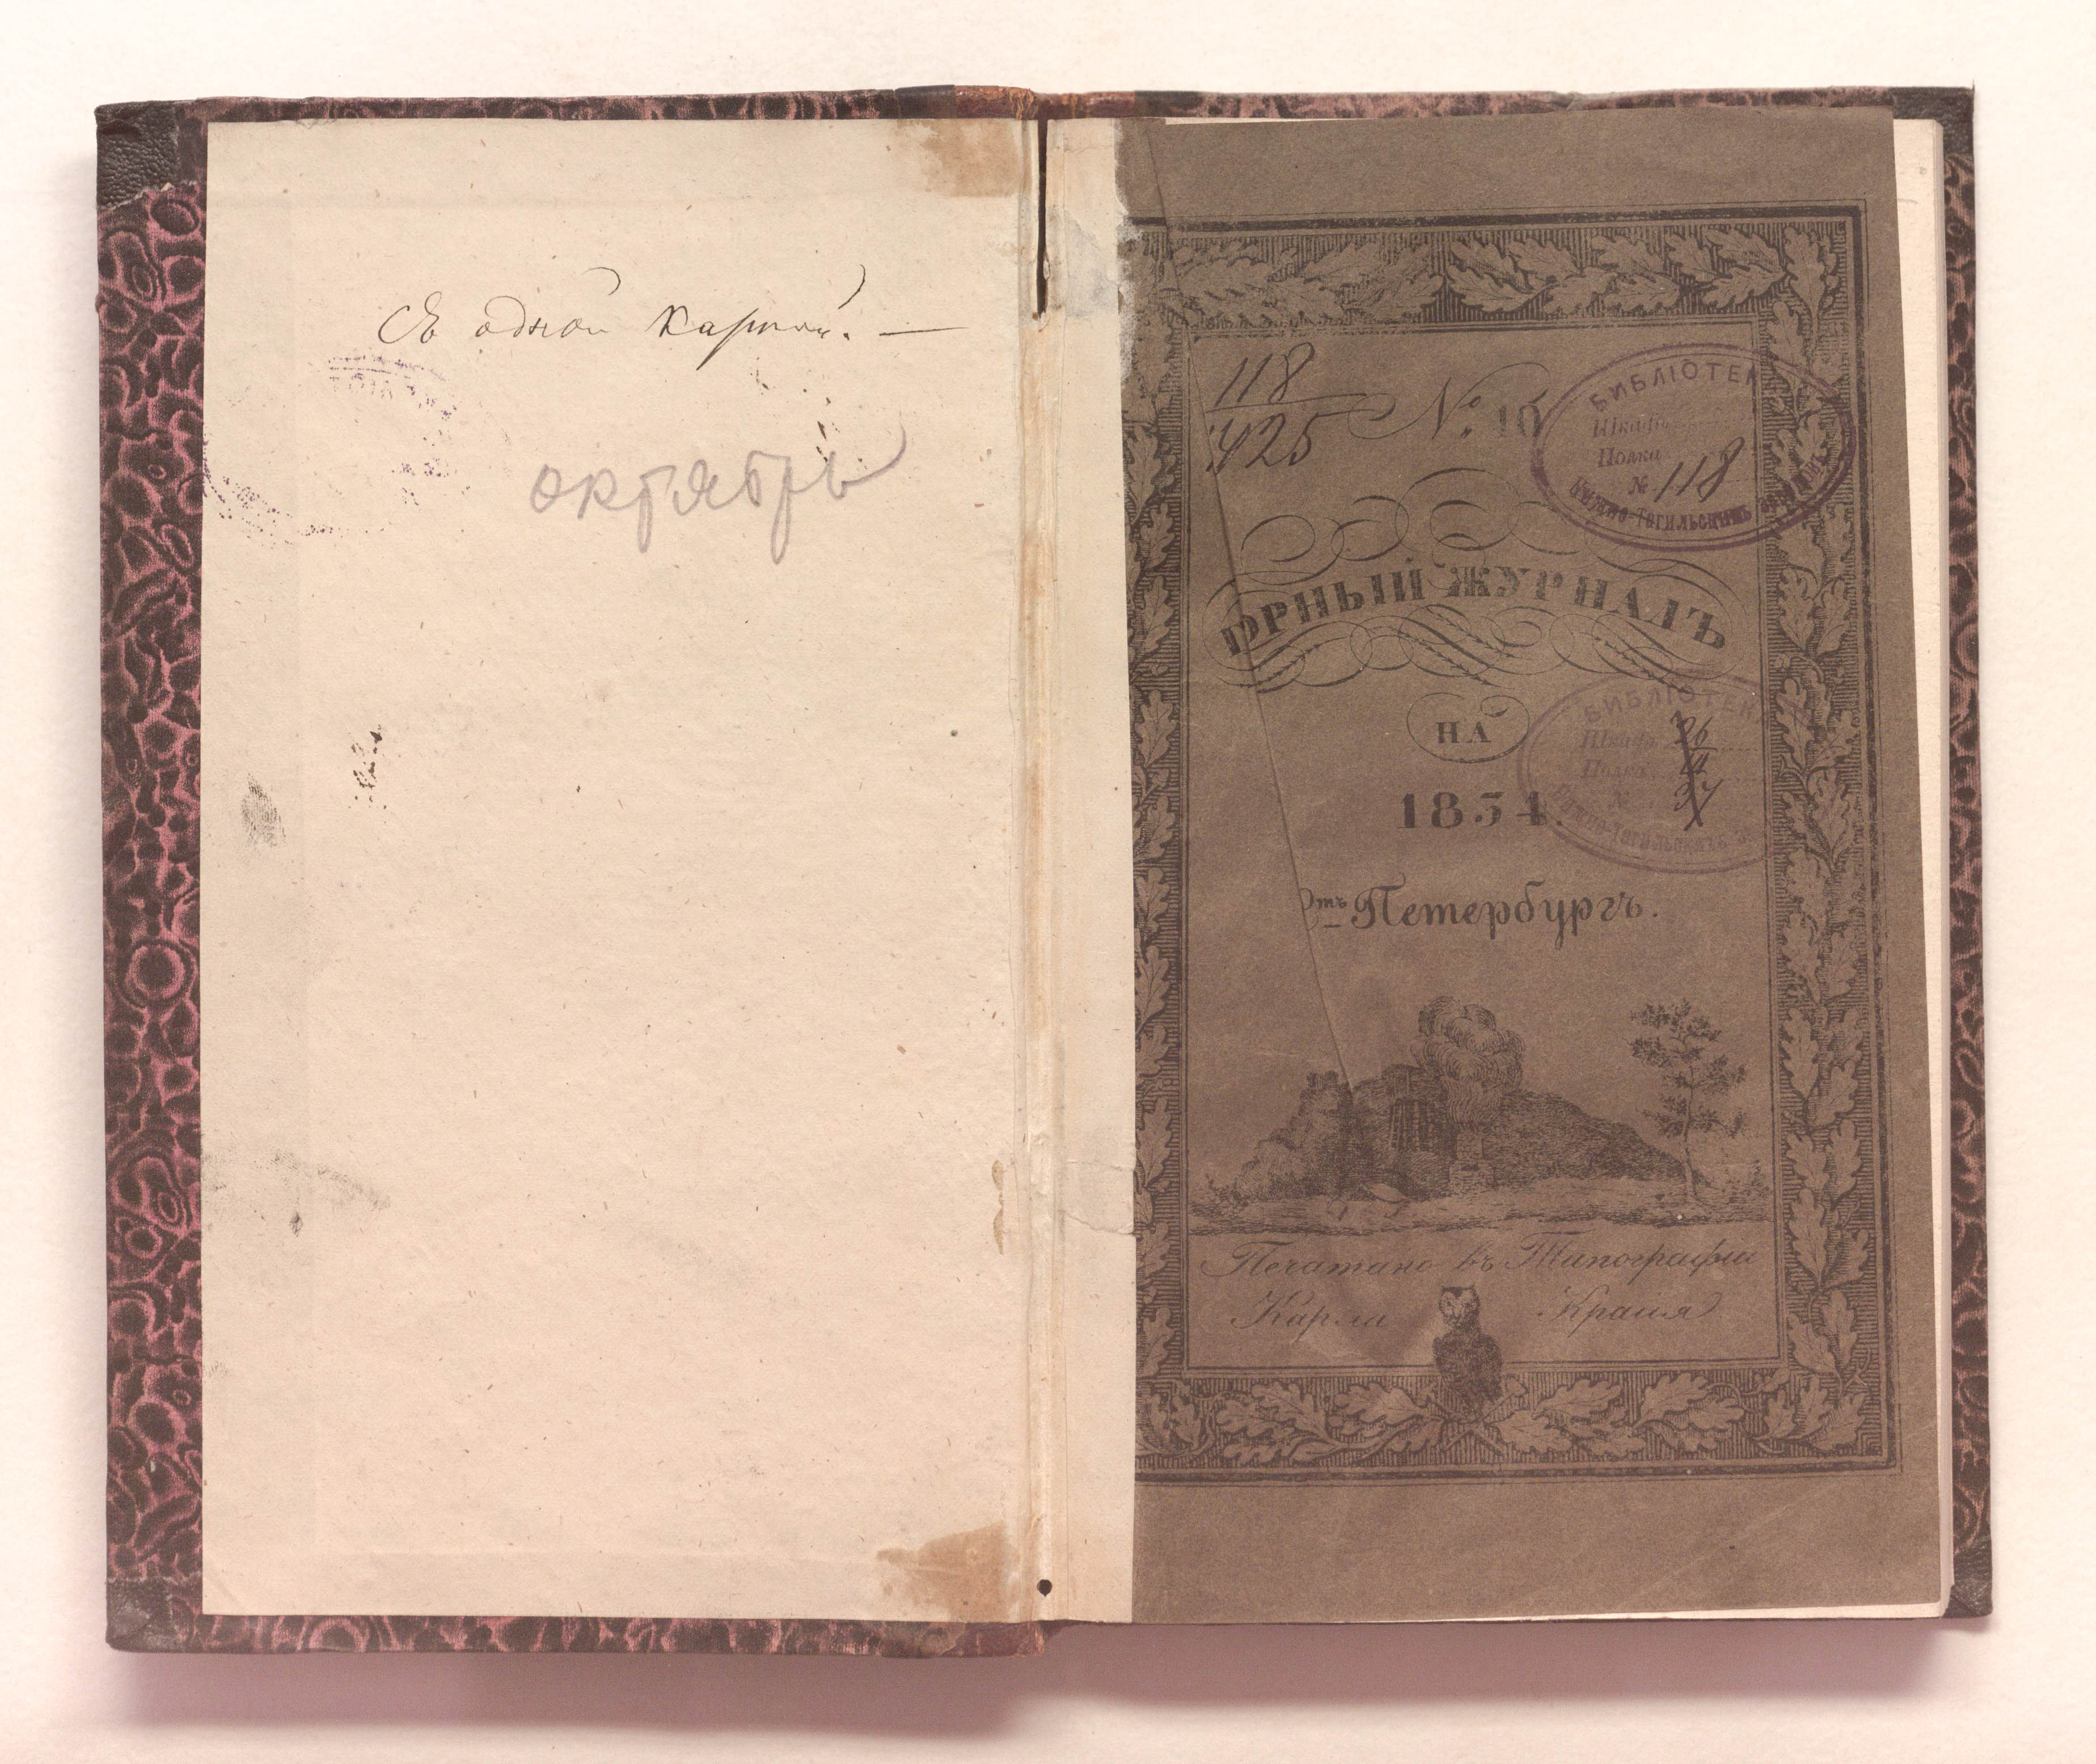 Съ одной картой. —
октябрь
118
425
№ 10
БИБЛІОТЕК
Шкафъ
Полка
№ 118
НИЖНЕ-ТАГИЛЬСКИХЪ
ОРНЫЙ ЖУРНАЛЪ
НА
1834.
БИБЛІОТЕКА
Шкафъ 26
Полка
№ 37
НИЖНЕ-ТАГИЛЬСКИХЪ
Петербургъ.
Печатано въ Типографіи
Карла Крайя